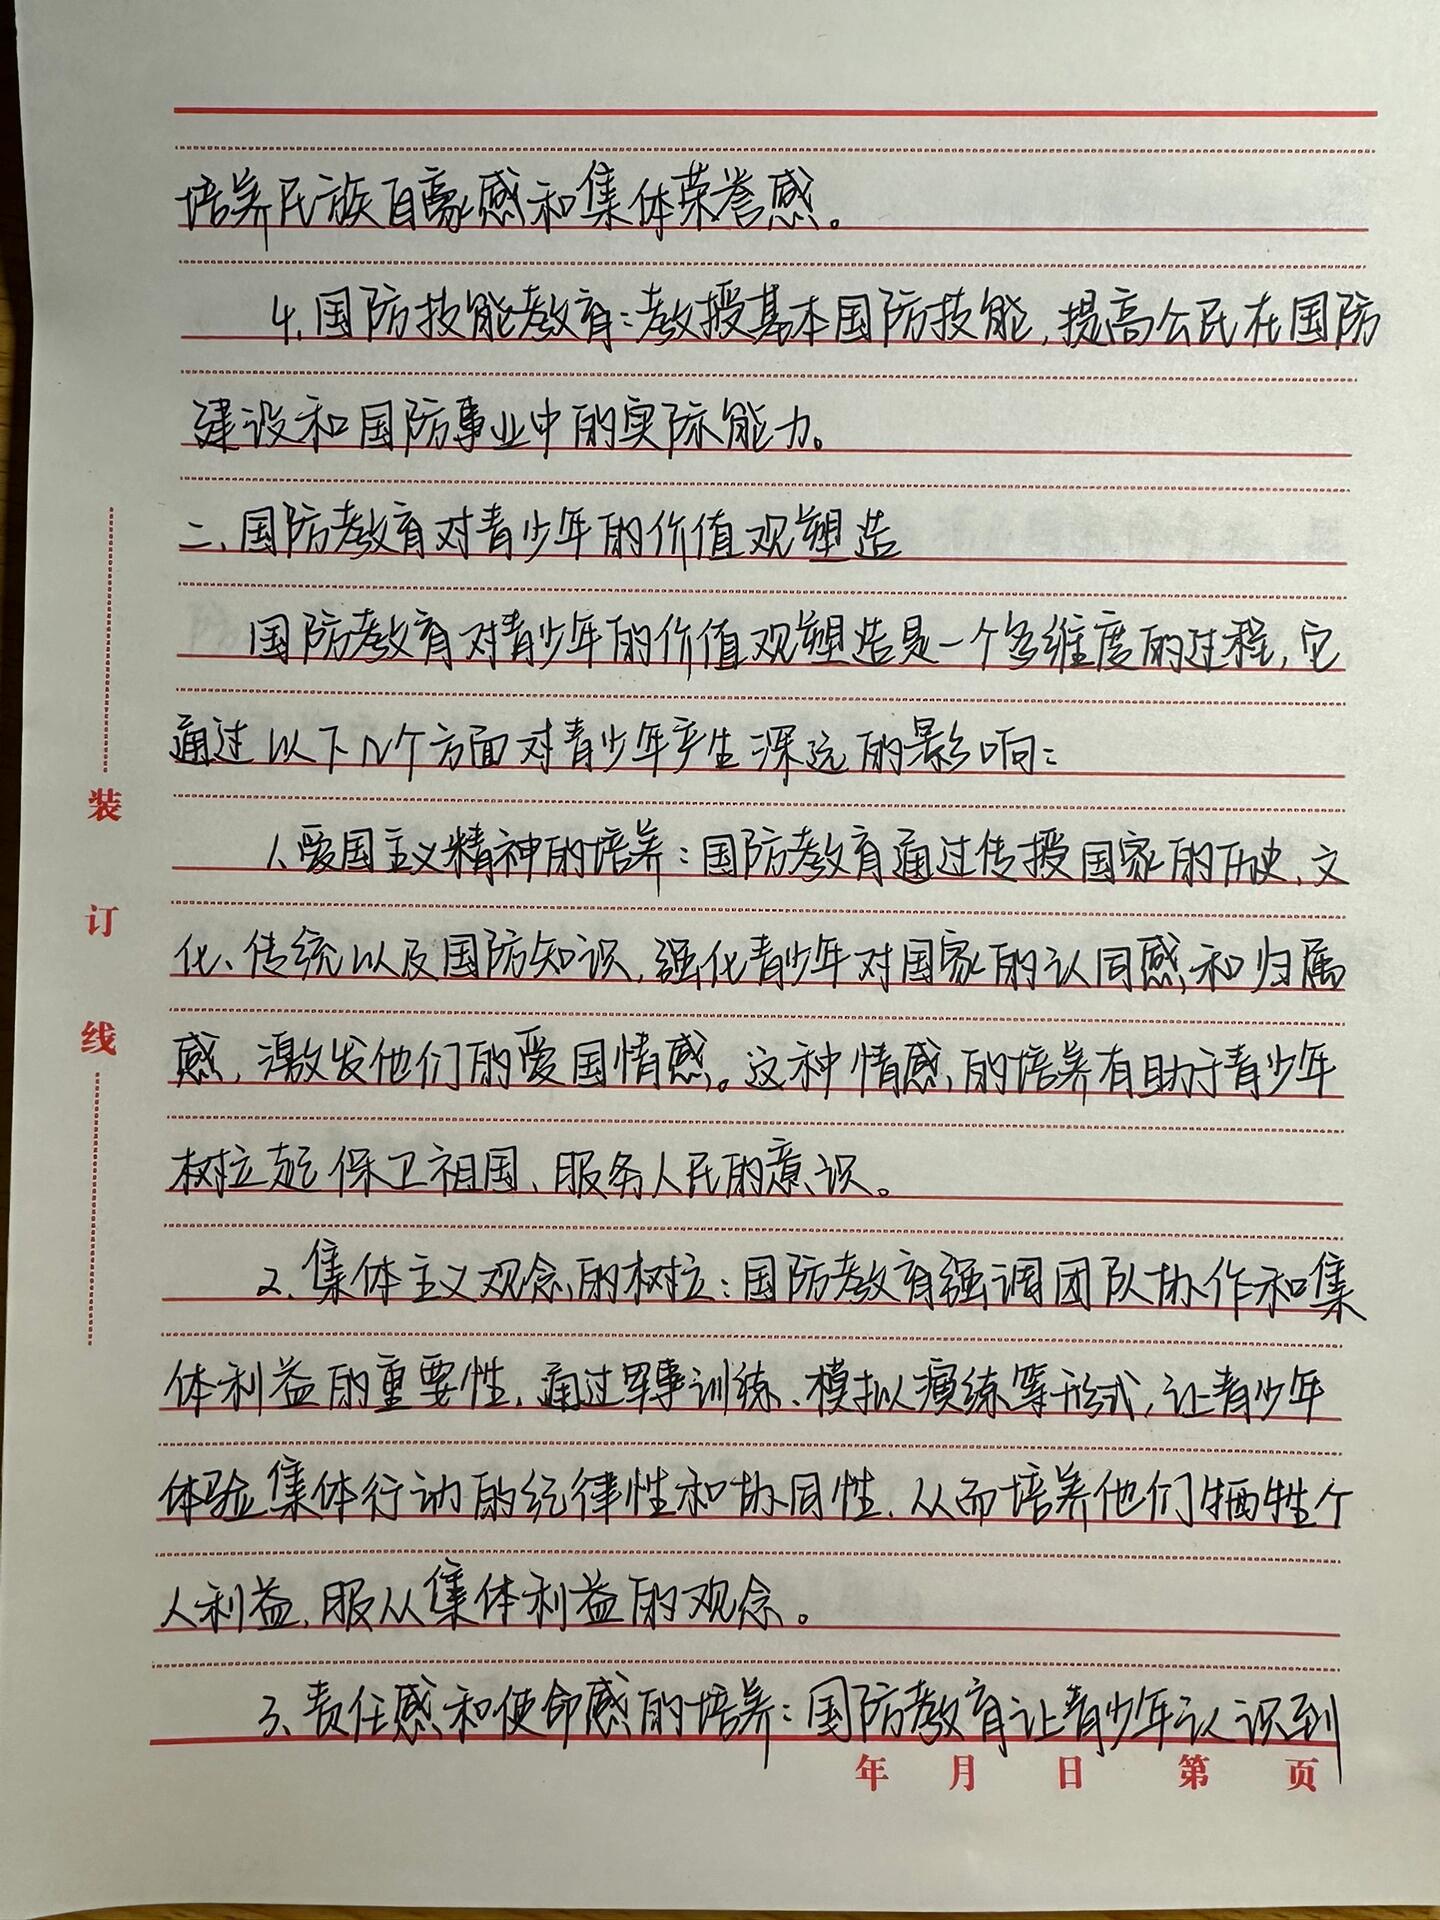 培养民族自豪感和集体荣誉感。
4.国防技能教育：教授基本国防技能，提高公民在国防
建设和国防事业中的实际能力。
二、国防教育对青少年的价值观塑造
国防教育对青少年的价值观塑造是一个多维度的过程，它
通过以下几个方面对青少年产生深远的影响：
1、爱国主义精神的培养：国防教育通过传授国家的历史、文
化、传统以及国防知识，强化青少年对国家的认同感和归属
感，激发他们的爱国情感。这种情感的培养有助于青少年
树立起保卫祖国、服务人民的意识。
2、集体主义观念的树立：国防教育强调团队协作和集
体利益的重要性，通过军事训练、模拟演练等形式，让青少年
体验集体行动的纪律性和协同性，从而培养他们牺牲个
人利益，服从集体利益的观念。
3、责任感和使命感的培养：国防教育让青少年认识到
装
订
线
年 月 日 第 页